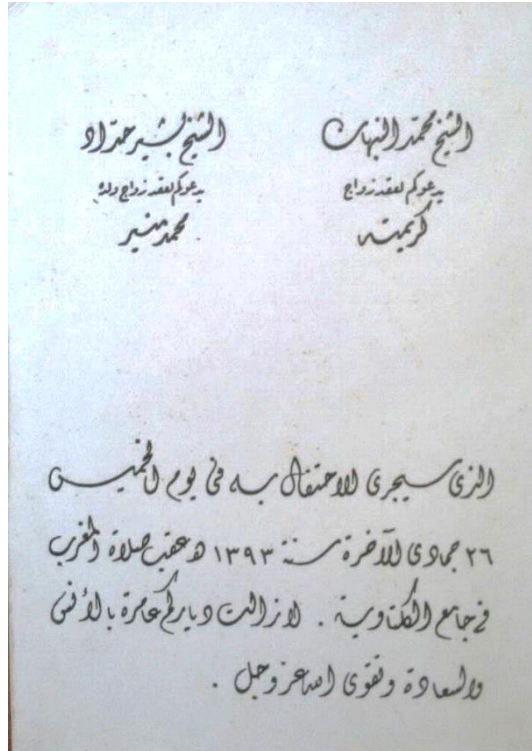 الشيخ محمد النبهان
يدعوكم لعقد زواج
كريمته
الشيخ بشير حداد
يدعوكم لعقد زواج ولده
محمد منير
الذي سيجري الاحتفال به في يوم الخميس
٢٦ جمادى الآخرة سنة ١٣٩٣ هـ عقب صلاة المغرب
في جامع الكلتاوية . لا زالت دياركم عامرة بالأنس
والسعادة وتقوى الله عز وجل .